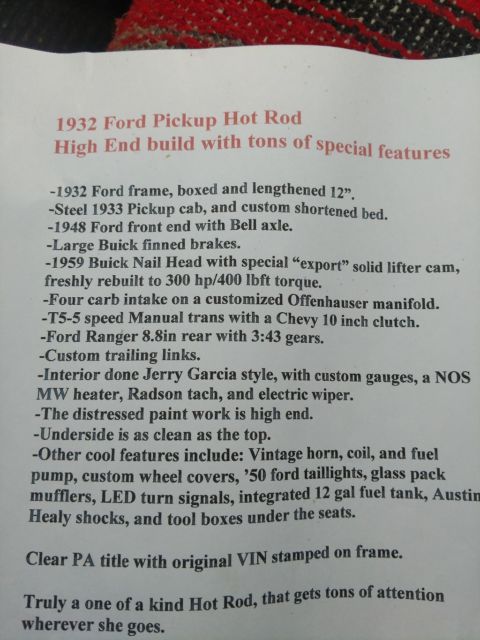 1932 Ford Pickup Hot Rod
High End build with tons of special features
-1932 Ford frame, boxed and lengthened 12”.
-Steel 1933 Pickup cab, and custom shortened bed.
-1948 Ford front end with Bell axle.
-Large Buick finned brakes.
-1959 Buick Nail Head with special “export” solid lifter cam,
freshly rebuilt to 300 hp/400 lbft torque.
-Four carb intake on a customized Offenhauser manifold.
-T5-5 speed Manual trans with a Chevy 10 inch clutch.
-Ford Ranger 8.8in rear with 3:43 gears.
-Custom trailing links.
-Interior done Jerry Garcia style, with custom gauges, a NOS
MW heater, Radson tach, and electric wiper.
-The distressed paint work is high end.
-Underside is as clean as the top.
-Other cool features include: Vintage horn, coil, and fuel
pump, custom wheel covers, ’50 ford taillights, glass pack
mufflers, LED turn signals, integrated 12 gal fuel tank, Austin
Healy shocks, and tool boxes under the seats.
Clear PA title with original VIN stamped on frame.
Truly a one of a kind Hot Rod, that gets tons of attention
wherever she goes.